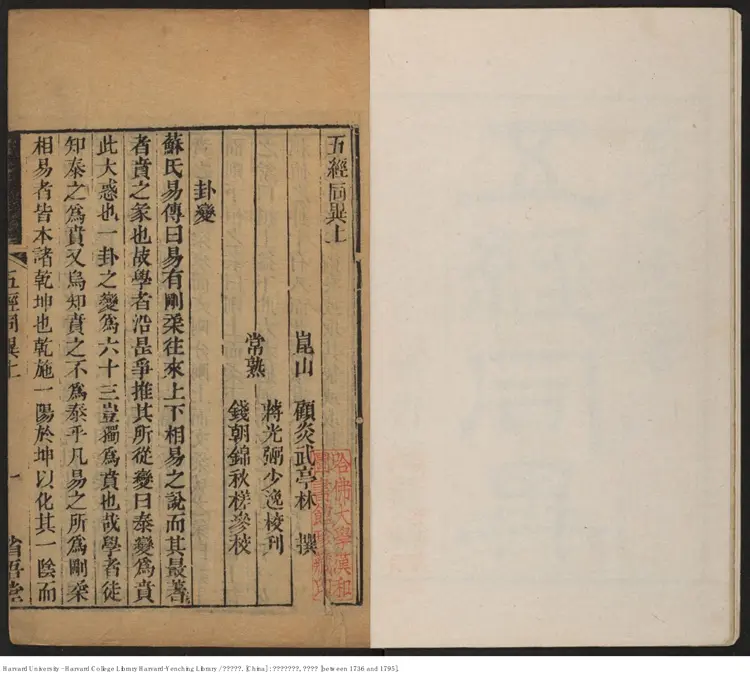 五經同異上
崑山 顧炎武亭林 撰
常熟
蔣光弼少逸校刊
錢朝錦秋槎參校
卦變
蘇氏易傳曰易有剛柔往來上下相易之說而其最著
者賁之彖也故學者沿是爭推其所從變曰泰變爲賁
此大惑也一卦之變爲六十三豈獨爲賁也哉學者徒
知泰之爲賁又烏知賁之不爲泰乎凡易之所爲剛柔
相易者皆本諸乾坤也乾施一陽於坤以化其一陰而
五經同異上
一
省吾堂
哈佛大學漢和
圖書館珍藏印
Harvard University - Harvard College Library Harvard-Yenching Library / ?????. [China] : ???????, ???? [between 1736 and 1795].